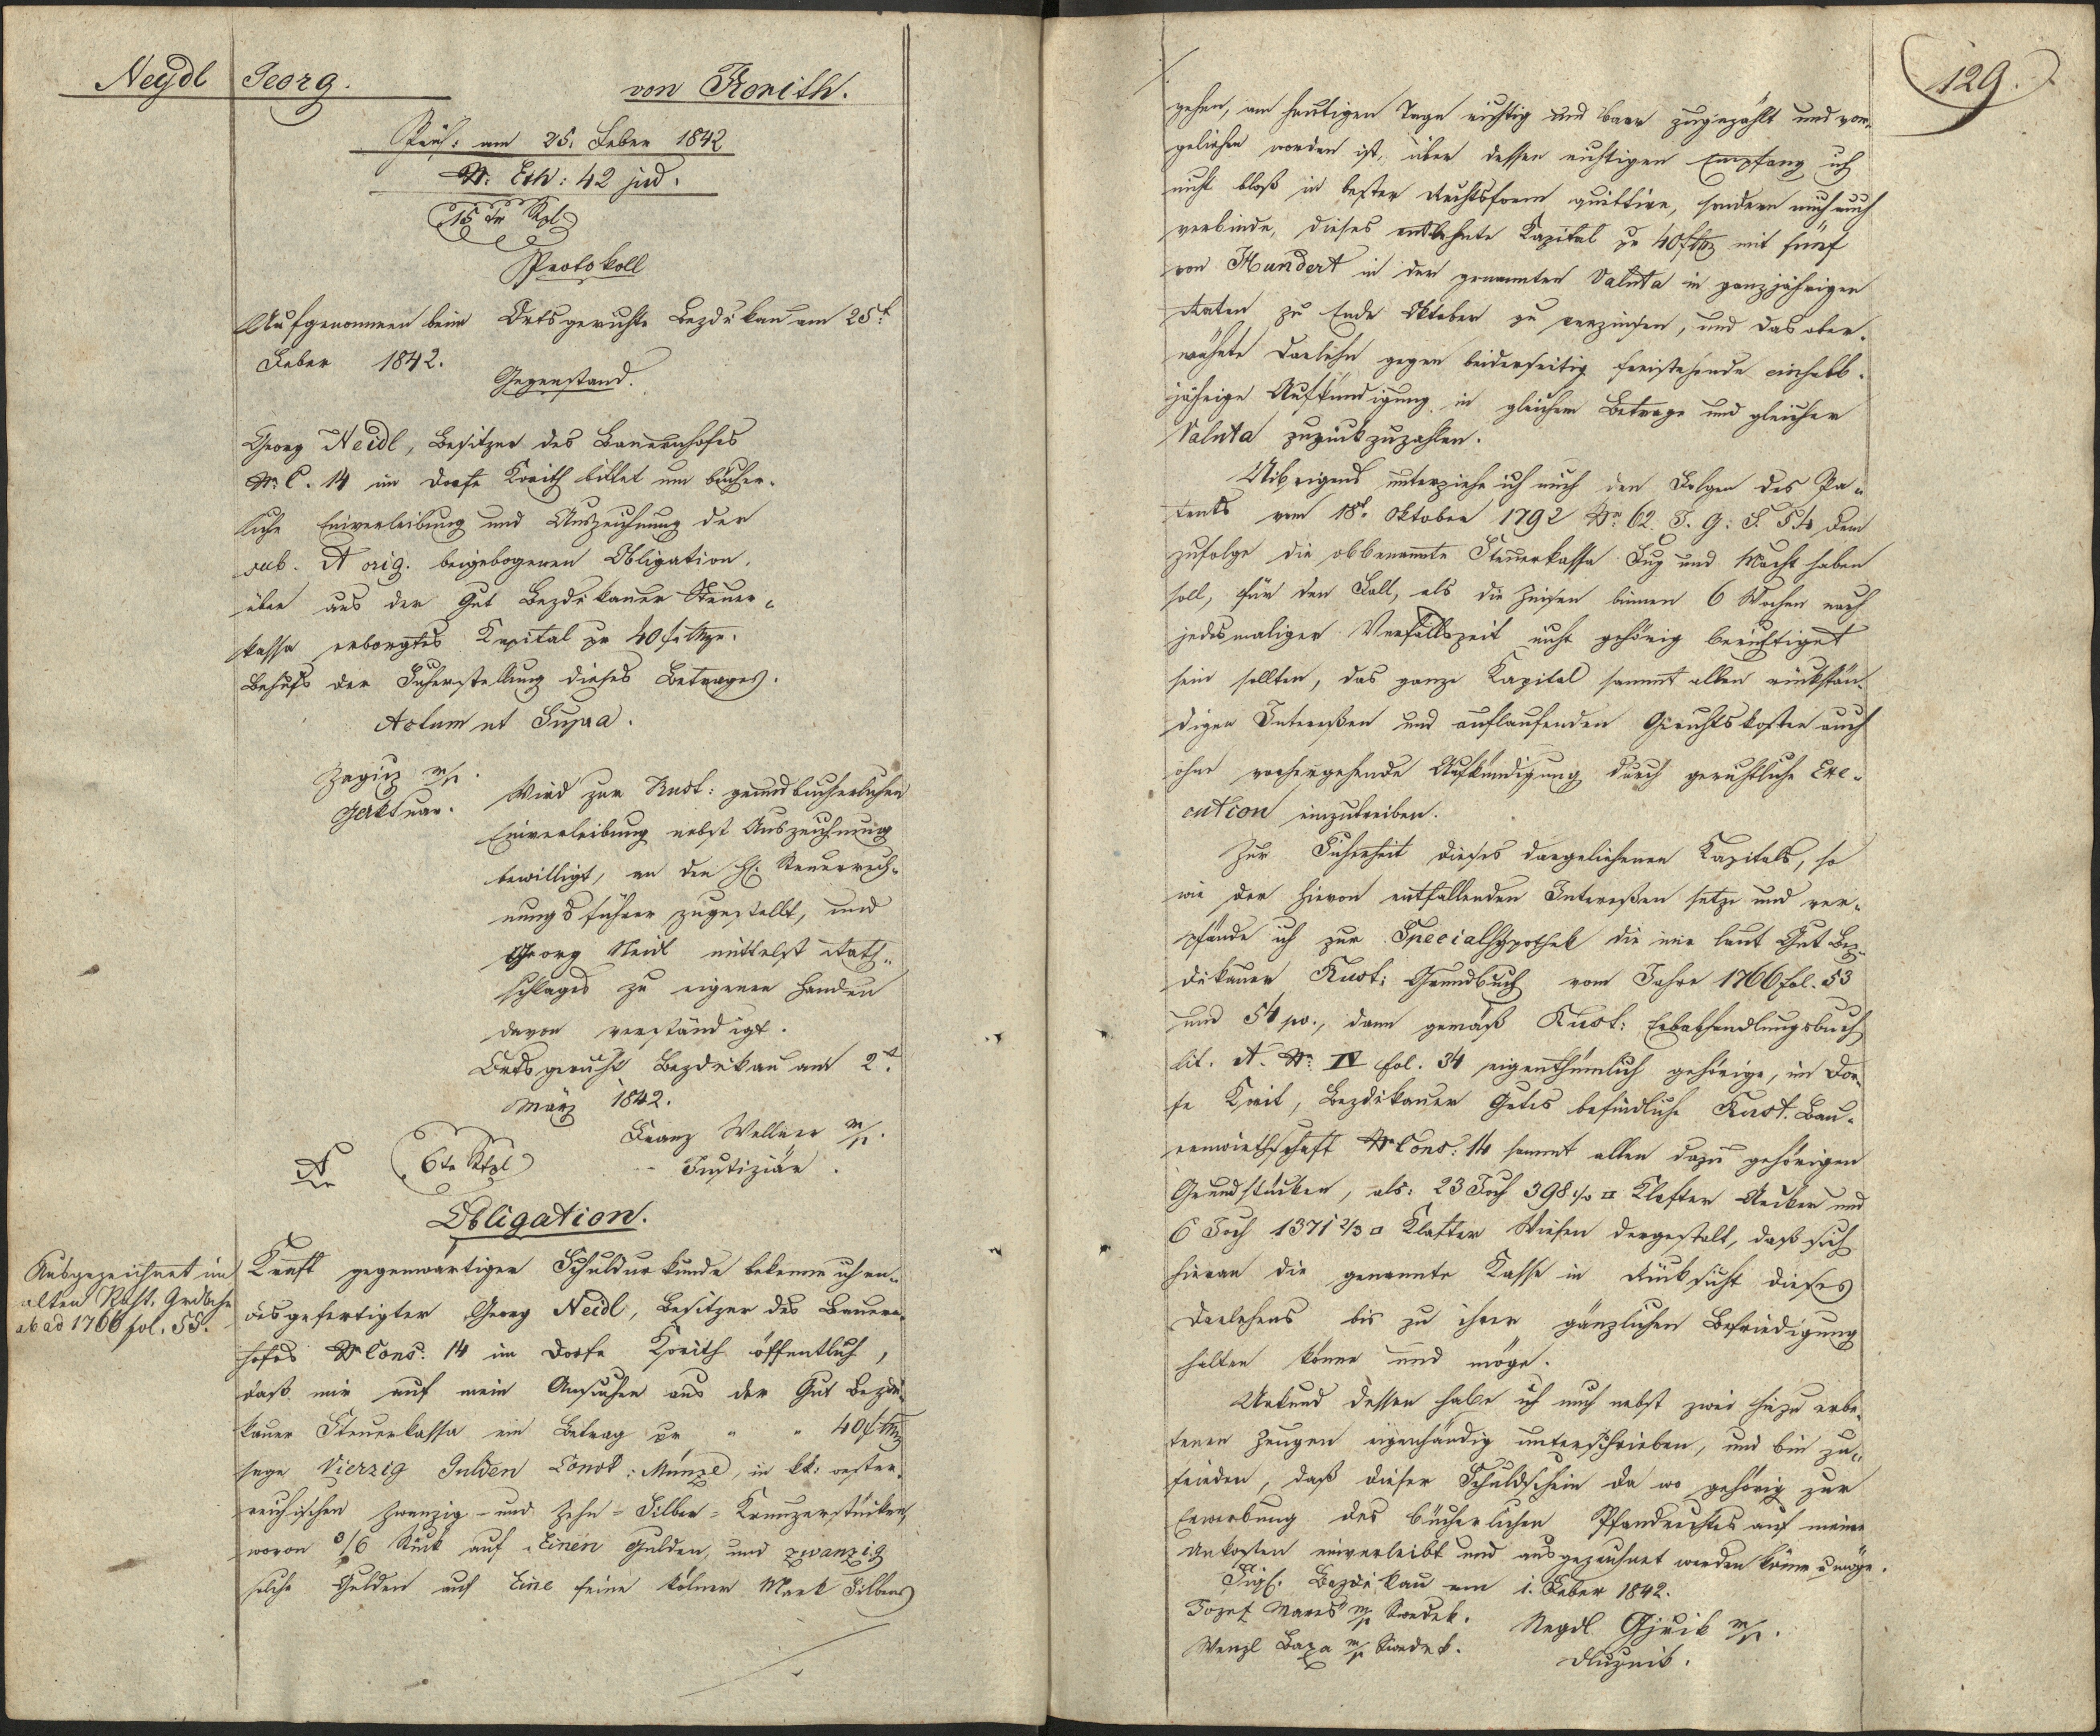 Neydl Georg. von Korith.
Präs: am 25. Feber 1842
Nr. Exh: 42 jud.
15 Xr Stpl
Protokoll
Aufgenommen beim Ortsgerichte Bezdiekau am 25t
Feber 1842.
Gegenstand.
Georg Neidl, Besitzer des Bauernhofes
Nr. C. 14 im Dorfe Korith bittet um bücher-
liche Einverleibung und Auszeichnung der
sub. A orig. beigebogenen Obligation,
über aus der Gut Bezdiekauer Steuer-
kassa erborgtes Kapital pr 40 f: Mze.
Behufs der Sicherstellung dieses Betrages.
Actum ut Supra.
m/p.
Actuar.
Wird zur Rust: grundbücherlichen
Einverleibung nebst Auszeichnung
bewilligt, an den H: Steuerrech-
nungsführer zugestellt, und
Georg Neidl mittelst Rath-
schlages zu eigenen Handen
davon verständigt.
Ortsgericht Bezdiekau am 2t
März 1842.
Franz Wellner m/p.
Justiziär.
A
6 Xr Stpl
Obligation.
Ausgezeichnet im
alten Rust. Grdbche
ab ad 1766 fol. 53.
Kraft gegenwärtiger Schuldurkunde bekenne ich en-
desgefertigter Georg Neidl, Besitzer des Bauern-
hofes Nr Cons. 14 im Dorfe Korith öffentlich,
daß mir auf mein Ansuchen aus der Gut Bezdie-
kauer Steuerkassa ein Betrag pr " " 40 f Mz
sage Vierzig Gulden Convt: Münze, in kk: oester-
reichischen zwanzig- und zehn-Silber-Kreuzerstücken,
wovon 3/6 Stück auf Einen Gulden, und zwanzig
solche Gulden auf Eine feine kölner Mark Silbers
129.
gehen, am heutigen Tage richtig und baar zugezählt und vor-
geliehen worden ist, über dessen richtigen Empfang ich
nicht bloß in bester Rechtsform quittire, sondern mich auch
verbinde, dieses entlehnte Kapital pr 40 f Mz mit fünf
von Hundert in der genannten Valuta in ganzjährigen
Raten zu Ende Oktober zu verzinsen, und das ober-
wähnte Darlehn gegen beiderseitig freistehende einhalb-
jährige Aufkündigung in gleichem Betrage und gleicher
Valuta zurückzuzahlen.
Uibrigens unterziehe ich mich den Folgen des Pa-
tents vom 18t. Oktober 1792 Nr. 62 J. G: S. dem
zufolge die obbenannte Steuerkassa Fug und Macht haben
soll, für den Fall, als die Zinsen binnen 6 Wochen nach
jedesmaliger Verfallszeit nicht gehörig berichtiget
sein sollten, das ganze Kapital sammt allen rückstän-
digen Intereßen und auflaufenden Gerichtskosten auch
ohne vorhergehende Aufkündigung durch gerichtliche Exe-
cution einzutreiben.
Zur Sicherheit dieses dargeliehenen Kapitals, so
wie der hievon entfallenden Intereßen setze und ver-
pfände ich zur Specialhypothek die mir laut Gut Bez-
diekauer Rust: Grundbuch vom Jahre 1766 fol. 53
und 54 po., dann gemäß Rust: Erbabhandlungsbuch
Lit. A. Nr. IV fol. 34 eigenthümlich gehörige, im Dor-
fe Korit, Bezdiekauer Gutes befindliche Rust. Bau-
ernwirthschaft Nr Cons: 14 sammt allen dazu gehörigen
Grundstücken, als: 23 Joch 398 □ Klafter Aecker und
6 Joch 1371 2/3 □ Klafter Wiesen dergestalt, daß sich
hieran die genannte Kasse in Rücksicht dieses
Darlehens bis zu ihrer gänzlichen Befriedigung
halten könne und möge.
Urkund dessen habe ich mich nebst zwei hiezu erbe-
tenen Zeugen eigenhändig unterschrieben, und bin zu-
frieden, daß dieser Schuldschein da wo gehörig zur
Erwerbung des bücherlichen Pfandrechtes auf meine
Unkosten einverleibt und ausgezeichnet werden könne u möge.
Sigl. Bezdiekau am 1. Feber 1842.
Jozef Mares m/p Swedek. Negdl Girik m/p.
Wenzl Baxa m/p Swedek. dluznik.